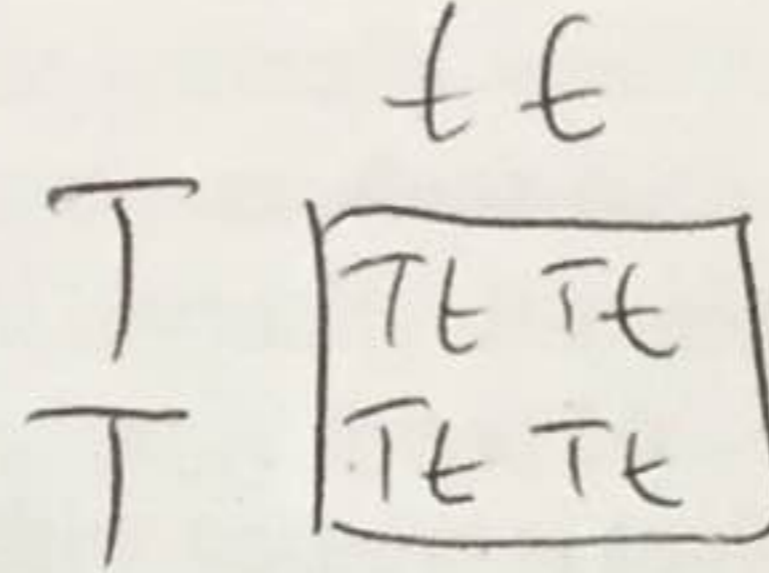 t t
T Tt Tt
T Tt Tt